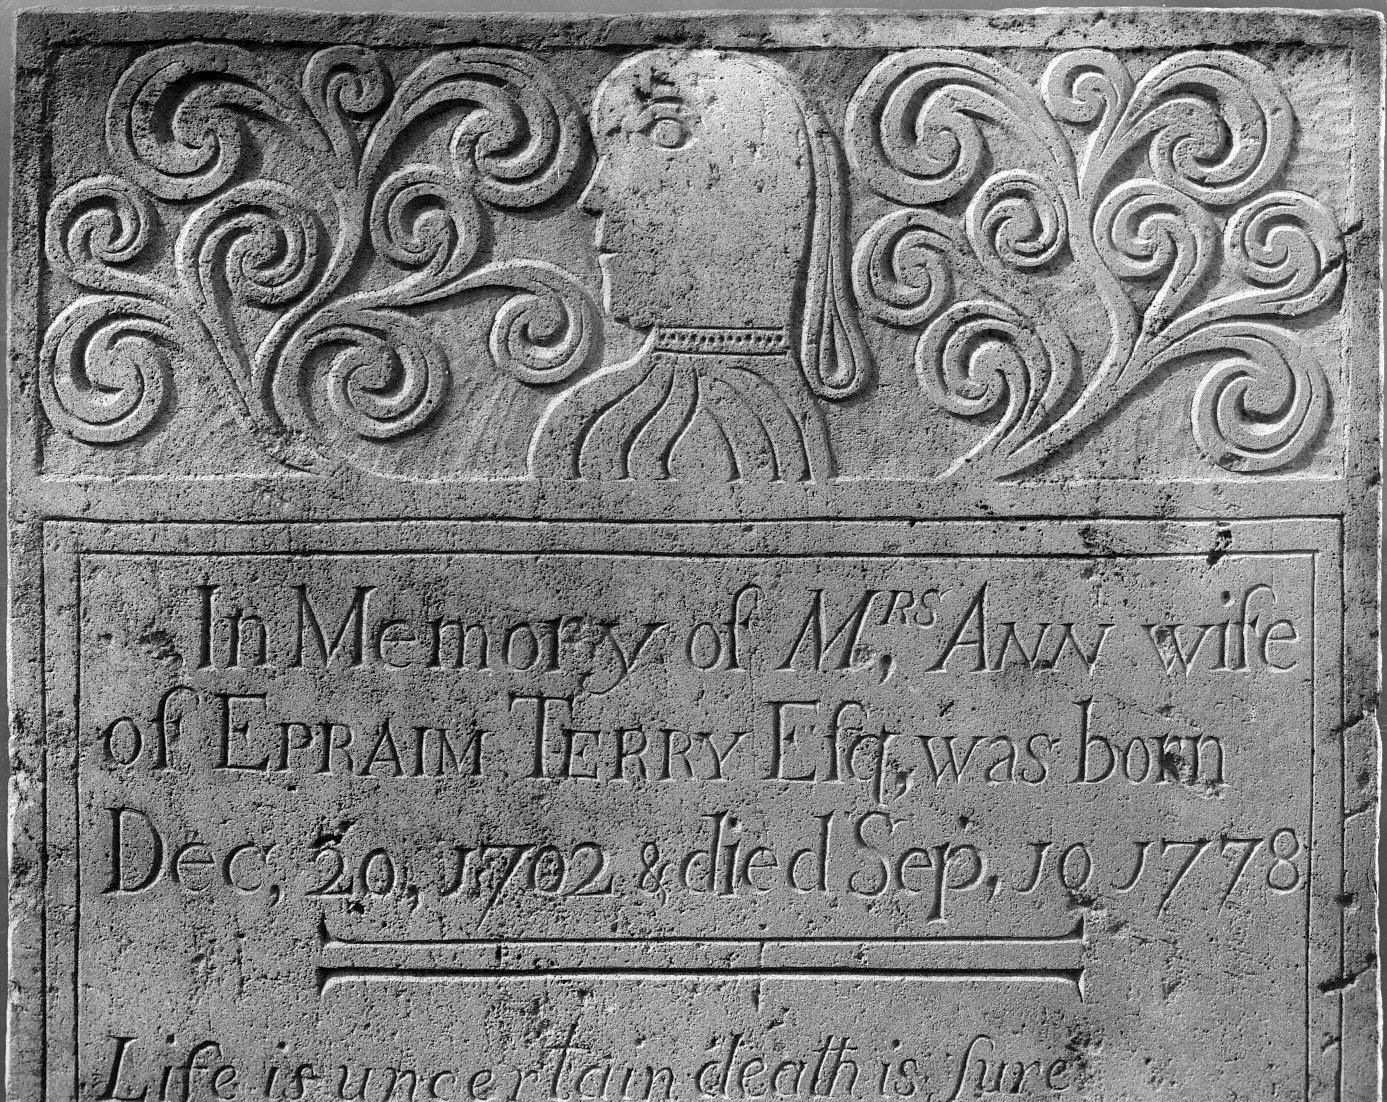 In Memory of Mʀs, Ann wife
of Epraim Terry Eſq, was born
Dec, 20, 1702 & died Sep, 19 1778
Life is uncertain death is ſure